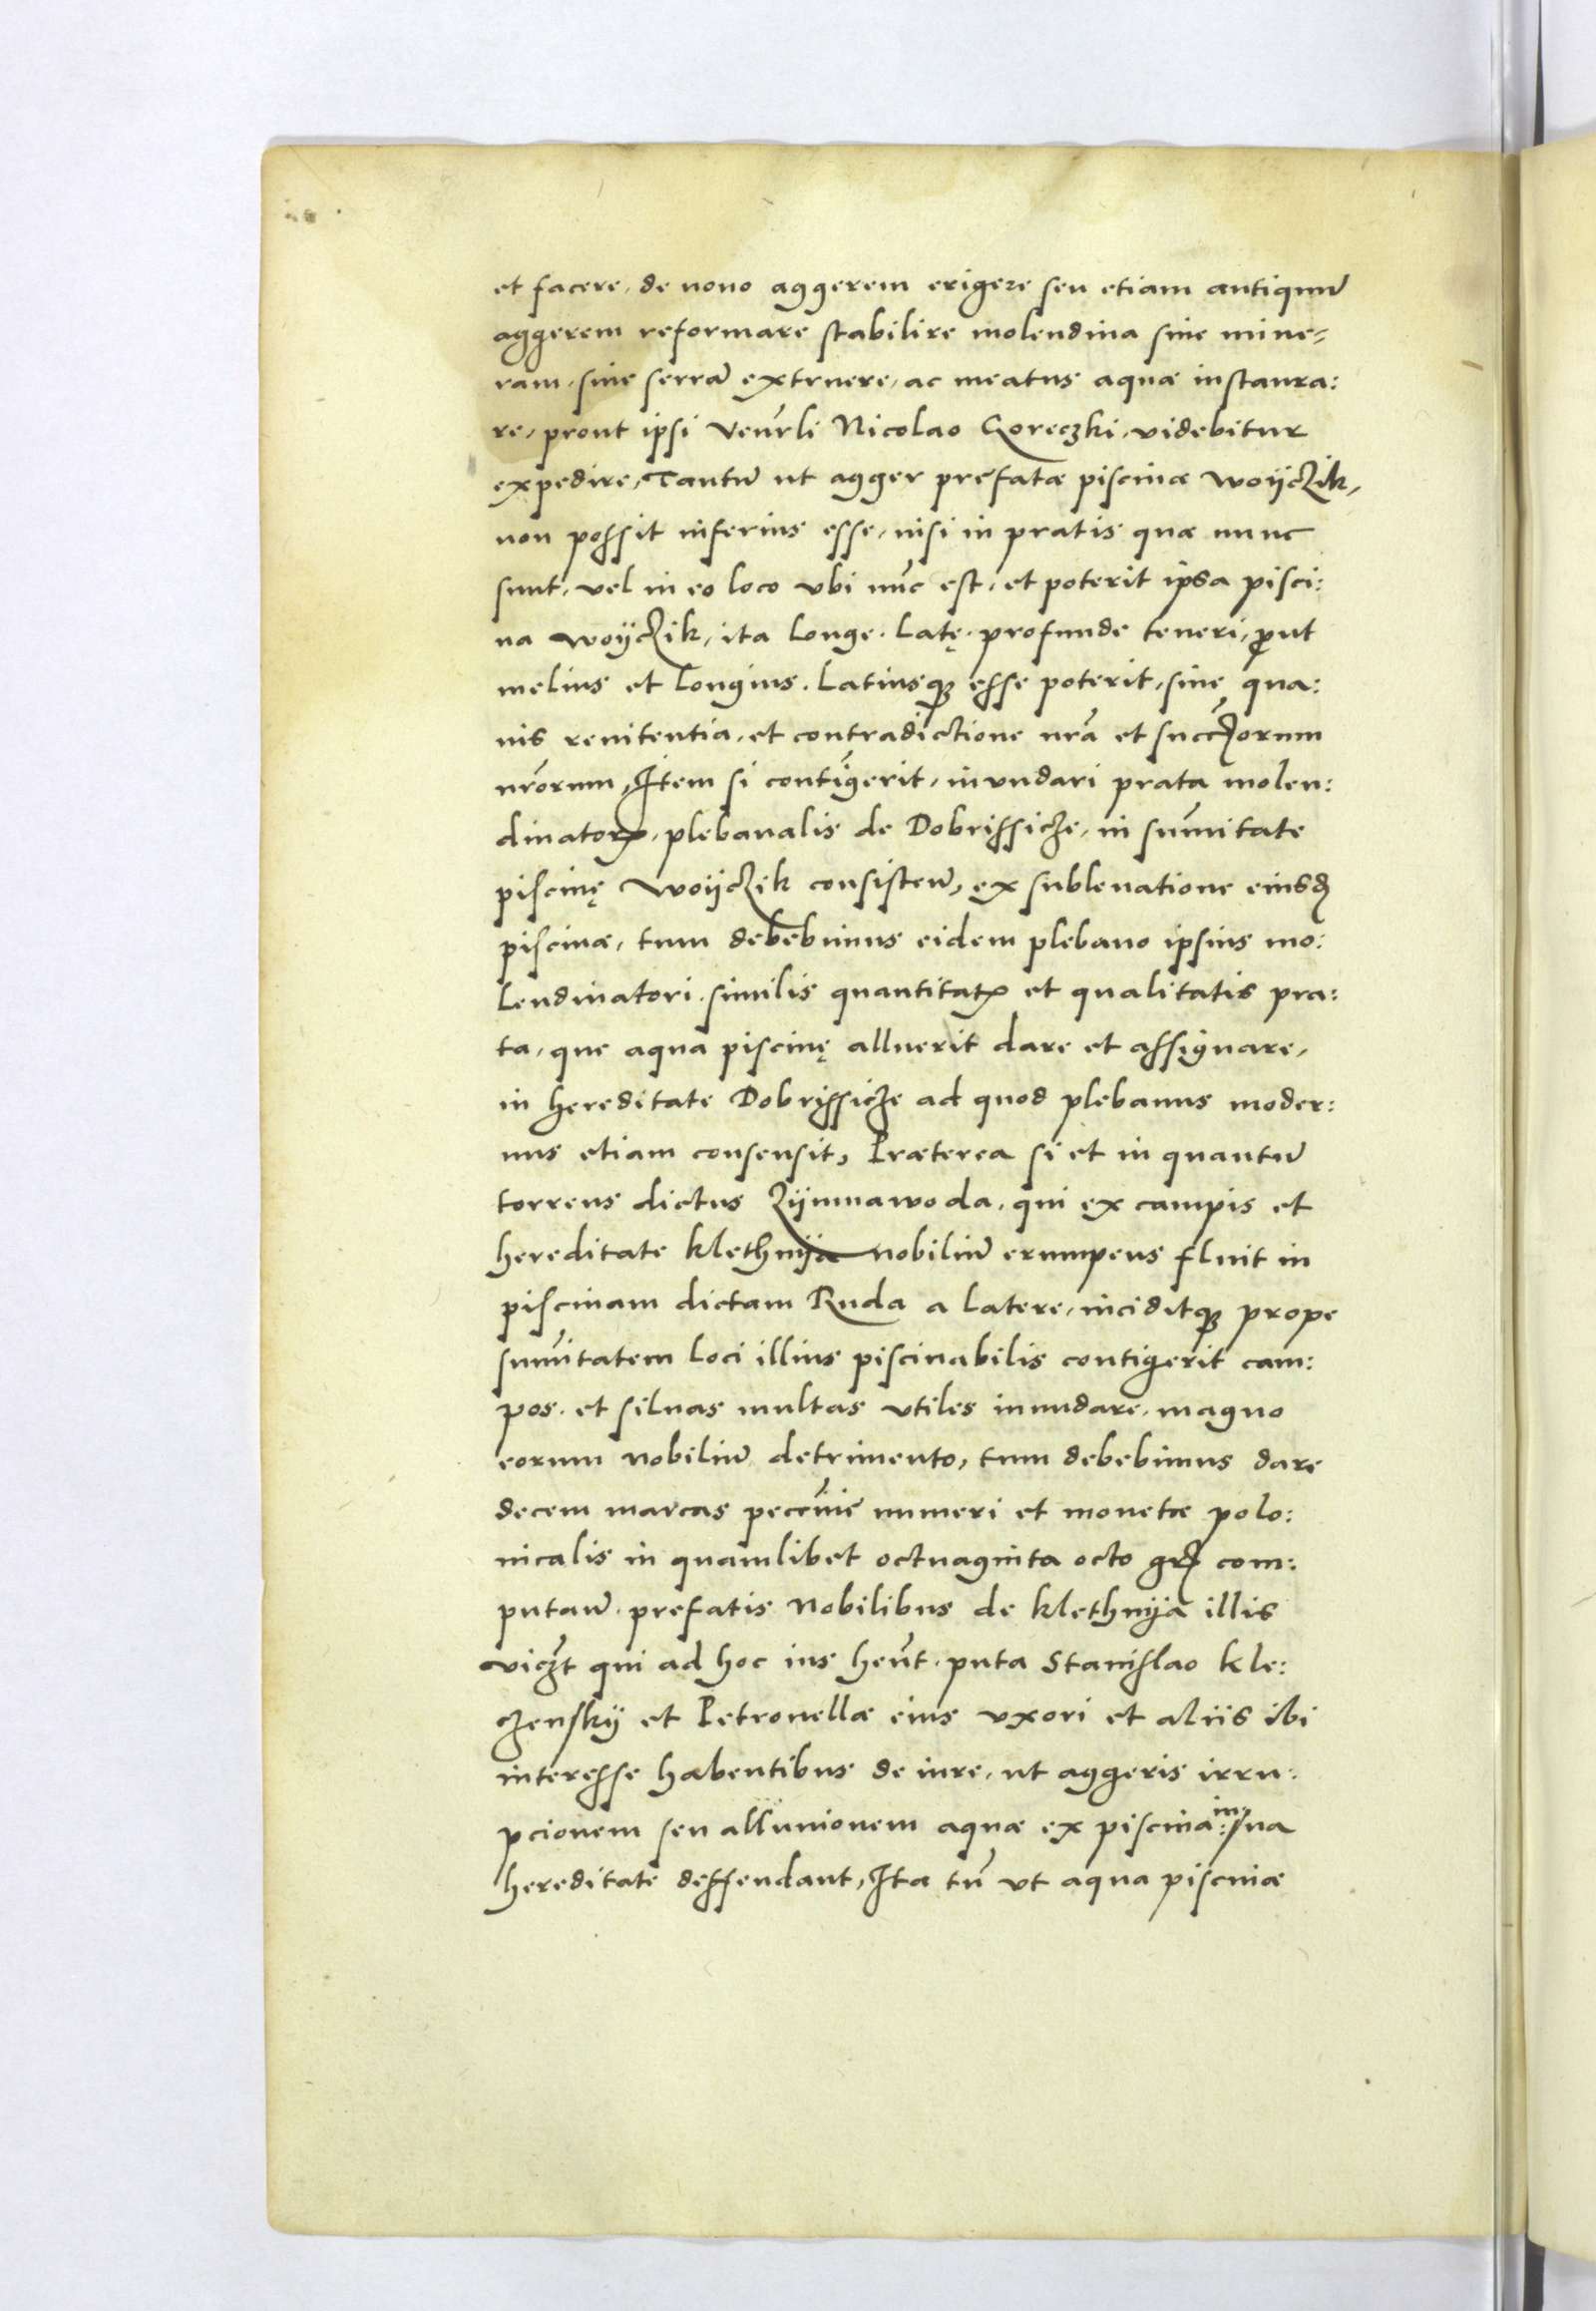 et facere, de nouo aggerem erigere seu etiam antiquū
aggerem reformare stabilire molendina siue mine-
ram, siue serrā extruere, ac meatus aquæ instaura:
re, prout ipsi Venērli Nicolao Goreczki, videbitur
expedire, Tantū ut agger prefatæ piscinæ woijczik,
non possit inferius esse, nisi in pratis quæ nunc
sunt, vel in eo loco vbi nūc est, et poterit ipsa pisci:
na woijczik, ita longe. latę. profunde teneri, ꝓut
melius et longius. latiusqꝫ esse poterit, sine qua:
uis renitentia, et contradictione nrā et succōrum
nrōrum, Item si contigerit, inundari prata molen:
dinatorꝭ, plebanalis de Dobrissicze, in sum̄itate
piscinę woijczik consisteñ, ex subleuatione eiusđ
piscinæ, tum debebimus eidem plebano ipsius mo:
lendinatori. similis quantitatꝭ et qualitatis pra:
ta, que aqua piscinę alluerit dare et assignare,
in hereditate Dobrissicze ad quod plebanus moder:
nus etiam consensit, Præterea si et in quantū
torrens dictus Zijmnawoda, qui ex campis et
hereditate klethnija nobiliū erumpens fluit in
piscinam dictam Ruda a latere, inciditqꝫ prope
sum̄itatem loci illius piscinabilis contigerit cam:
pos. et siluas multas vtiles inundare, magno
eorum nobiliū detrimento, tum debebimus dare
decem marcas peccunīe numeri et monetæ polo:
nicalis in quamlibet octuaginta octo grꝭ com:
putañ. prefatis nobilibus de klethnija illis
viczt̄ qui ad hoc ius hēnt. puta Stanislao kle:
czenskij et Petronellæ eius vxori et aliis ibi
interesse habentibus de iure, ut aggeris irru:
pcionem seu alluuionem aquæ ex piscina: in sua
hereditate deffendant, Ita tn̄ vt aqua piscinæ